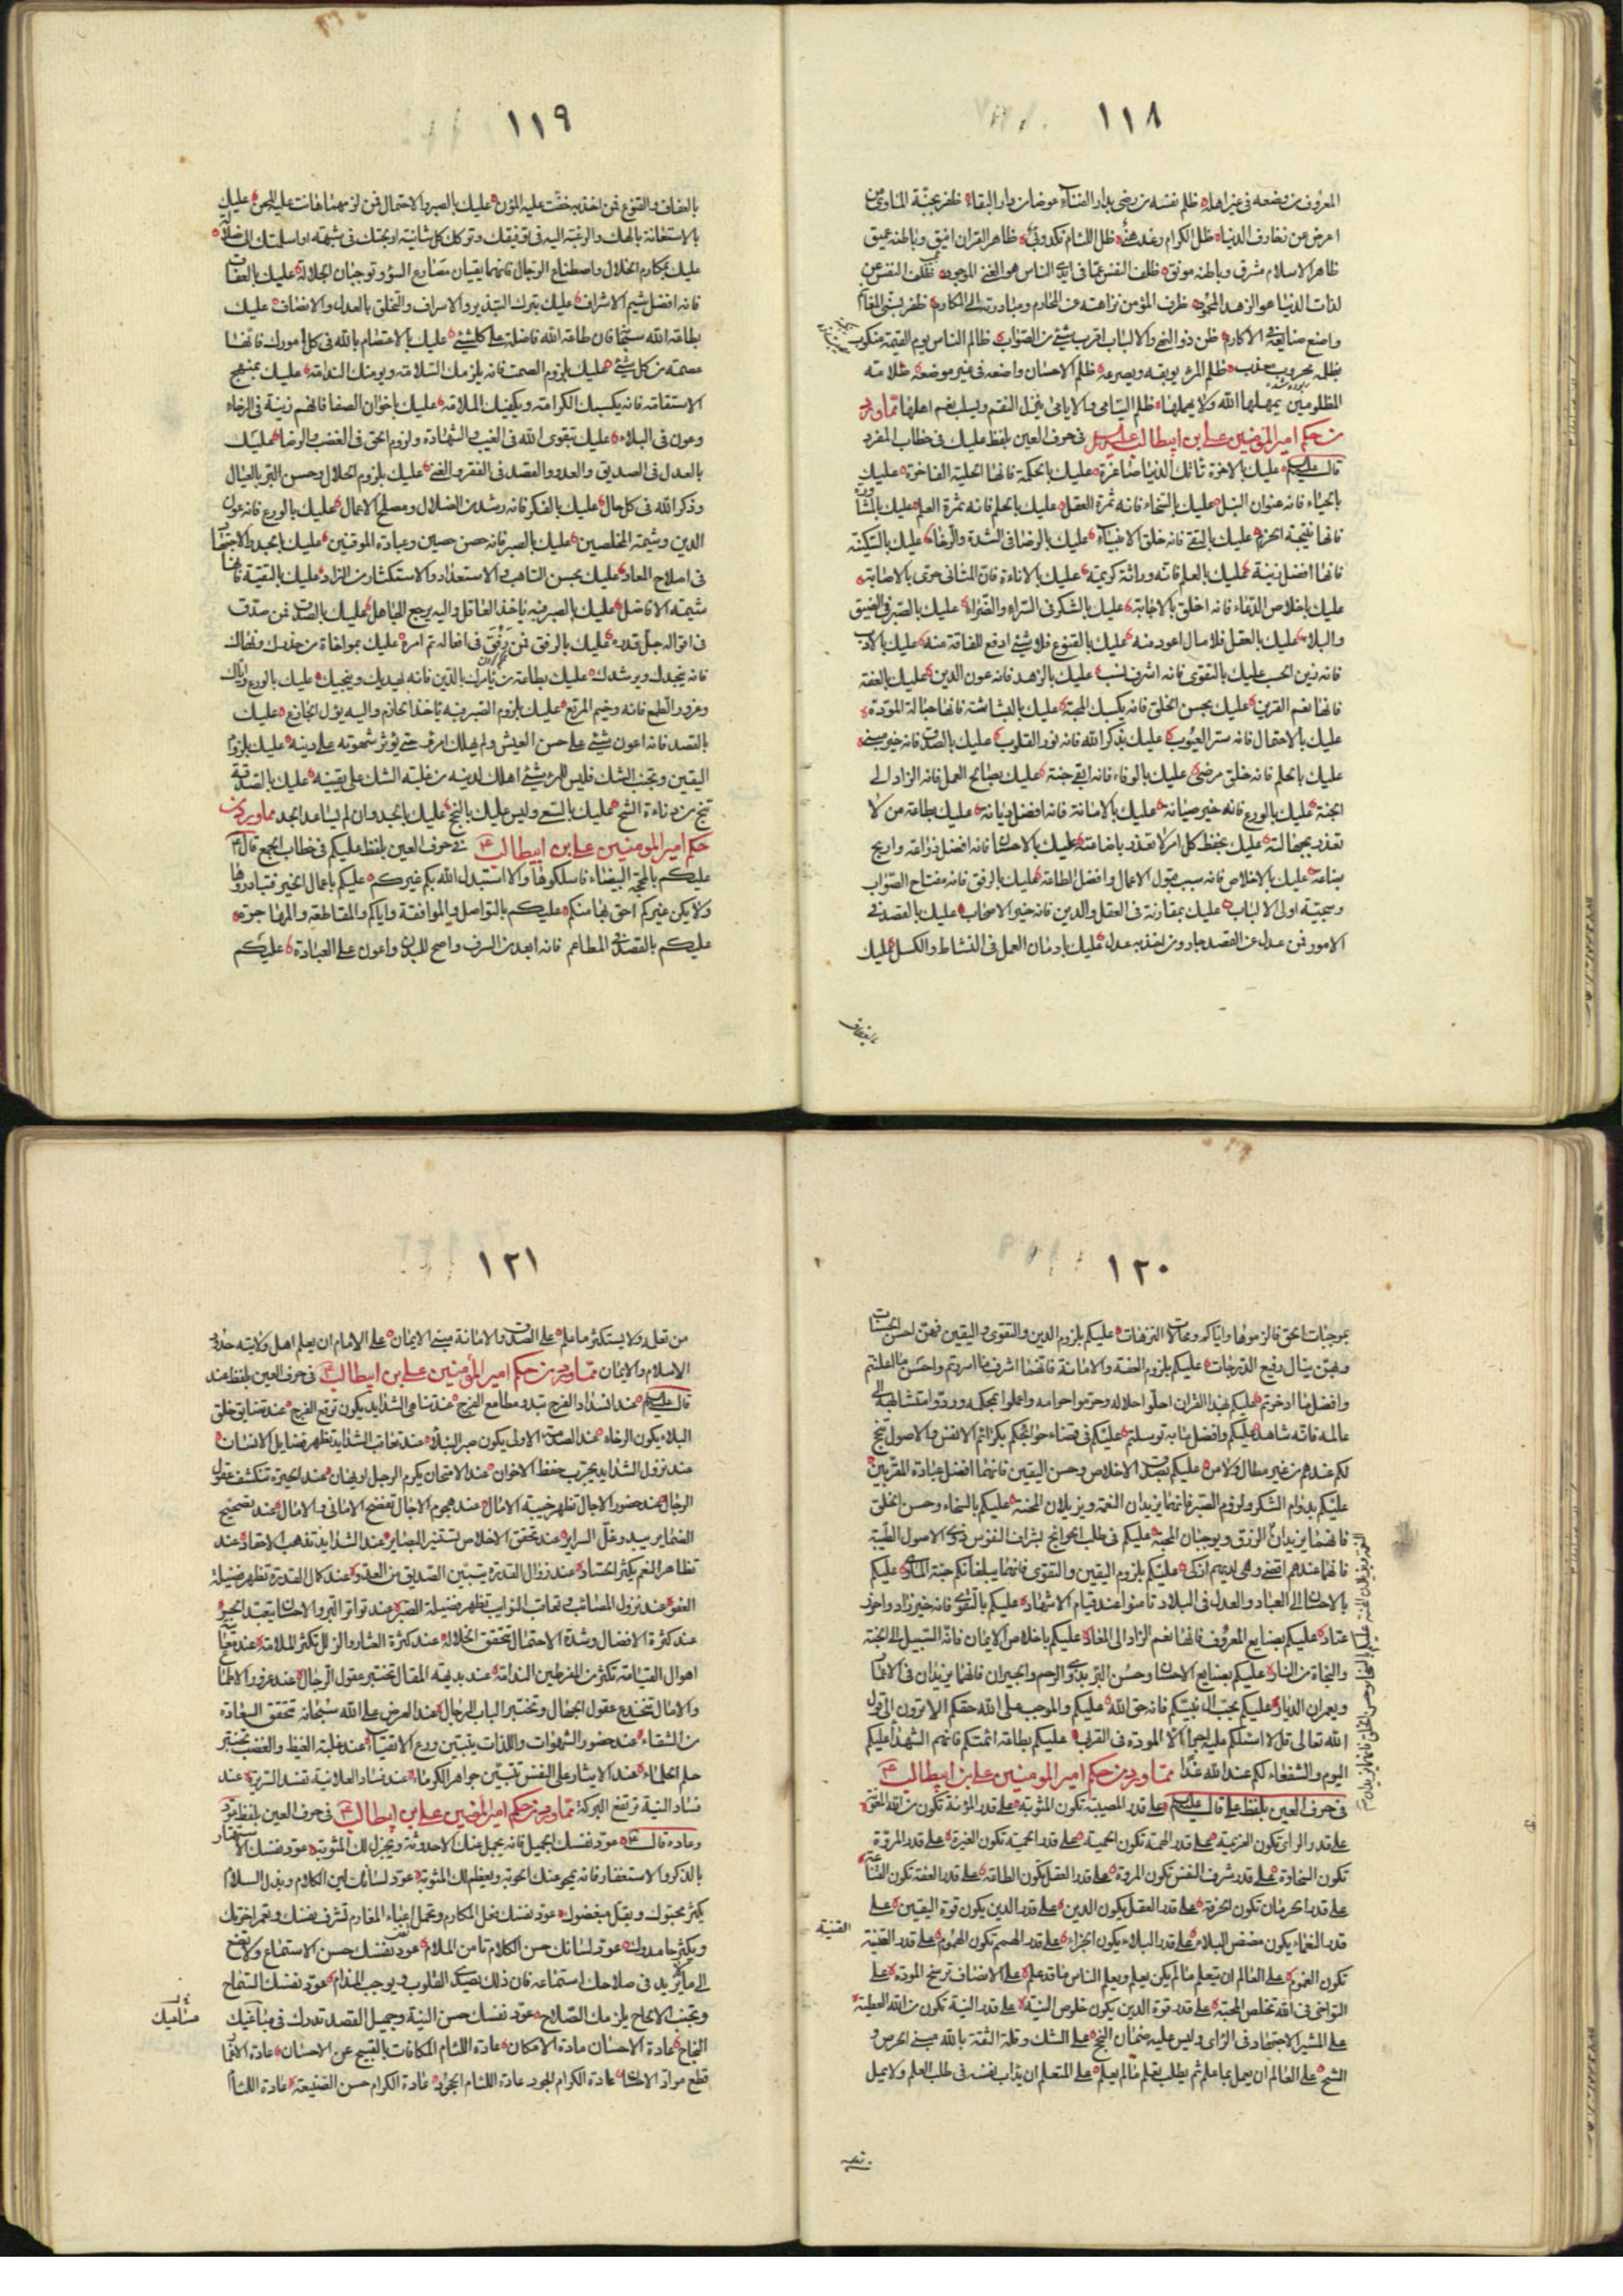 ١١٨
المعروف من وضعه فى غير اهله ظلم نفسه من رضى بدار الفناء عوضا من دار البقاء ظفر بجنة الماوى من
اعرض عن زخارف الدنيا ظل الكرام رغد هنئ ظل اللئام نكد وبئ ظاهر القران انيق وباطنه عميق
ظاهر الاسلام مشرق وباطنه مونق ظلف النفس عما فى ايدى الناس هو الغنى الموجود ظلف النفس عن
لذات الدنيا هو الزهد المحمود ظرف المؤمن نزاهته عن المحارم ومبادرته الى المكارم ظفر بسنى المغانم
واضع صنايعه فى الاكارم ظن ذو النهى والالباب اقرب شئ من الصواب ظالم الناس يوم القيمة منكوب
بظلمه محروب معذب ظلم المرء يوبقه ويصرعه ظلم الاحسان واضعه فى غير موضعه ظلامة
المظلومين يمهلها الله ولا يهملها ظلم اليتامى والايامى ينزل النقم ويسلب نعم اهلها مما ورد
من حكم امير المؤمنين على بن ابيطالب فى حرف العين بلفظ عليك فى خطاب المفرد
قال عليك بالاخرة تاتك الدنيا صاغرة عليك بالحكمة فانها الحلية الفاخرة عليك
بالحياء فانه عنوان النبل عليك بالسخاء فانه ثمرة العقل عليك بالحلم فانه ثمرة العلم عليك بالمشاورة
فانها نتيجة الحزم عليك بالتقى فانه خلق الانبياء عليك بالرضا فى الشدة والرخاء عليك بالسكينة
فانها افضل زينة عليك بالعلم فانه وراثة كريمة عليك بالاناءة فان المتانى حرى بالاصابة
عليك باخلاص الدعاء فانه اخلق بالاجابة عليك بالشكر فى السراء والضراء عليك بالصبر فى الضيق
والبلاء عليك بالعقل فلا مال اعود منه عليك بالقنوع فلا شئ ادفع للفاقة منه عليك بالادب
فانه زين الحسب عليك بالتقوى فانه اشرف نسب عليك بالزهد فانه عون الدين عليك بالعفة
فانها نعم القرين عليك بحسن الخلق فانه يكسبك المحبة عليك بالبشاشة فانها حبالة المودة
عليك بالاحتمال فانه ستر العيوب عليك بذكر الله فانه نور القلوب عليك بالصدق فانه خير مبنى
عليك بالحلم فانه خلق مرضى عليك بالوفاء فانه اوقى جنة عليك بصالح العمل فانه الزاد الى
الجنة عليك بالورع فانه خير صيانة عليك بالامانة فانه افضل ديانة عليك بطاعة من لا
تعذر بجهالته عليك بحفظ كل امر لا تعذر باضاعته عليك بالاحسان فانه افضل زراعة واربح
بضاعة عليك بالاخلاص فانه سبب قبول الاعمال وافضل الطاعة عليك بالرفق فانه مفتاح الصواب
وسجية اولى الالباب عليك بمقارنة ذى العقل والدين فانه خير الاصحاب عليك بالقصد فى
الامور فمن عدل عن القصد جار ومن اخذ به عدل عليك بادمان العمل فى النشاط والكسل عليك
بالعفاف
١١٩
بالعفاف والقنوع فمن اخذ به خفت عليه المؤن عليك بالصبر والاحتمال فمن لزمهما هانت عليه المحن عليك
بالاستعانة بالهك والرغبة اليه فى توفيقك وترك كل شائبة اولجتك فى شبهة او اسلمتك الى ضلالة
عليك بمكارم الخلال واصطناع الرجال فانهما يقيان مصارع السوء وتوجبان الجلالة عليك بالعفاف
فانه افضل شيم الاشراف عليك بترك التبذير والاسراف والتخلق بالعدل والانصاف عليك
بطاعة الله سبحانه فان طاعة الله فاضلة على كل شئ عليك بالاعتصام بالله فى كل امورك فانها
عصمة من كل شئ عليك بلزوم الصمت فانه يلزمك السلامة ويومنك الندامة عليك بمنهج
الاستقامة فانه يكسبك الكرامة ويكفيك الملامة عليك باخوان الصفا فانهم زينة فى الرخاء
وعون فى البلاء عليك بتقوى الله فى الغيب والشهادة ولزوم الحق فى الغضب والرضا عليك
بالعدل فى الصديق والعدو والقصد فى الفقر والغنى عليك بلزوم الحلال وحسن البر بالعيال
وذكر الله فى كل حال عليك بالفكر فانه رشد من الضلال ومصلح الاعمال عليك بالورع فانه عون
الدين وشيمة المخلصين عليك بالصبر فانه حصن حصين وعبادة الموقنين عليك بالجد والاجتهاد
فى اصلاح المعاد عليك بحسن التاهب والاستعداد والاستكثار من الزاد عليك بالتقية فانها
شيمة الافاضل عليك بالصبر فبه ياخذ العاقل واليه يرجع الجاهل عليك بالصدق فمن صدق
فى اقواله جل قدره عليك بالرفق فمن رفق فى افعاله تم امره عليك بمواخاة من حذرك ونهاك
فانه ينجدك ويرشدك عليك بطاعة من يامرك بالدين فانه يهديك وينجيك عليك بالورع واياك
وغرور الطمع فانه وخيم المرتع عليك بلزوم الصبر فبه ياخذ الحازم واليه يؤل الجازع عليك
بالقصد فانه اعون شئ على حسن العيش ولم يهلك امرء حتى يؤثر شهوته على دينه عليك بلزوم
اليقين وتجنب الشك فليس للمرء شئ اهلك لدينه من غلبة الشك على يقينه عليك بالصدقة
تنج من دناءة الشح عليك بالسعى وليس عليك بالنجح عليك بالجد وان لم يساعد الجد مما ورد من
حكم امير المومنين على بن ابيطالب فى حرف العين بلفظ عليكم فى خطاب الجمع قال
عليكم بالمحجة البيضاء فاسلكوها والا استبدل الله بكم غيركم عليكم باعمال الخير فتبادروها
ولا يكن غيركم احق بها منكم عليكم بالتواصل والموافقة واياكم والمقاطعة والمهاجرة
عليكم بالقصد فى المطاعم فانه ابعد من السرف واصح للبدن واعون على العبادة عليكم
١٢٠
بموجبات الحق فالزموها واياكم ومحالات الترهات عليكم بلزوم الدين والتقوى واليقين فهن احسن الحسنات
وبهن ينال رفيع الدرجات عليكم بلزوم العفة والامانة فانهما اشرف ما اسررتم واحسن ما اعلنتم
وافضل ما ادخرتم عليكم بهذا القران احلوا حلاله وحرموا حرامه واعملوا بمحكمه وردوا متشابهه الى
عالمه فانه شاهد عليكم وافضل ما به توسلتم عليكم فى قضاء حوائجكم بكرائم الانفس والاصول تنجح
لكم عندهم من غير مطال ولا من عليكم بصدق الاخلاص وحسن اليقين فانهما افضل عبادة المقربين
عليكم بدوام الشكر ولزوم الصبر فانهما يزيدان النعمة ويزيلان المحنة عليكم بالسخاء وحسن الخلق
فانهما يزيدان الرزق ويوجبان المحبة عليكم فى طلب الحوائج بشراف النفوس ذوى الاصول الطيبة
فانها عندهم اقضى وهى لديهم ازكى عليكم بلزوم اليقين والتقوى فانهما يبلغانكم جنة الماوى عليكم
بالاحسان الى العباد والعدل فى البلاد تامنوا عند قيام الاشهاد عليكم بالتقوى فانه خير زاد واحرز
عتاد عليكم بصنايع المعروف فانها نعم الزاد الى المعاد عليكم باخلاص الايمان فانه السبيل الى الجنة
والنجاة من النار عليكم بصنايع الاحسان وحسن البر بذوى الرحم والجيران فانهما يزيدان فى الاعمار
ويعمران الديار عليكم بحب ال نبيكم فانه حق الله عليكم والموجب على الله حقكم الا ترون الى قول
الله تعالى قل لا اسئلكم عليه اجرا الا المودة فى القربى عليكم بطاعة ائمتكم فانهم الشهداء عليكم
اليوم والشفعاء لكم عند الله غدا مما ورد من حكم امير المومنين على بن ابيطالب
فى حرف العين بلفظ على قال على قدر المصيبة تكون المثوبة على قدر المؤنة تكون من الله المعونة
على قدر الراى تكون العزيمة على قدر الهمة تكون الحمية على قدر الحمية تكون الغيرة على قدر المروة
تكون السخاوة على قدر شرف النفس تكون المروة على قدر العقل تكون الطاعة على قدر العفة تكون القناعة
على قدر الحرمان تكون الحرفة على قدر العقل يكون الدين على قدر الدين يكون قوة اليقين على
قدر النعماء يكون مضض البلاء على قدر البلاء يكون الجزاء على قدر الهمم تكون الهموم على قدر القنية
القنية
تكون الغموم على العالم ان يتعلم ما لم يكن يعلم ويعلم الناس ما قد علم على الانصاف ترسخ المودة على
التواخى فى الله تخلص المحبة على قدر قوة الدين يكون خلوص النية على قدر النية تكون من الله العطية
على المشير الاجتهاد فى الراى وليس عليه ضمان النجح على الشك وقلة الثقة بالله مبنى الحرص و
الشح على العالم ان يعمل بما علم ثم يطلب تعلم ما لم يعلم على المتعلم ان يداب نفسه فى طلب العلم ولا يمل
من تعلمه
١٢١
من تعلمه ولا يستكثر ما علم على الصدق والامانة مبنى الايمان على الامام ان يعلم اهل ولايته حدود
الاسلام والايمان مما ورد من حكم امير المؤمنين على بن ابيطالب فى حرف العين بلفظ عند
قال عند انسداد الفرج تبدو مطالع الفرج عند تناهى الشدايد يكون توقع الفرج عند تضايق حلق
البلاء يكون الرخاء عند الصدمة الاولى يكون صبر النبلاء عند تعاقب الشدايد تظهر فضايل الانسان
عند نزول الشدايد يجرب حفظ الاخوان عند الامتحان يكرم الرجل او يهان عند الحيرة تنكشف عقول
الرجال عند حضور الاجال تظهر خيبة الامال عند هجوم الاجال تفتضح الامانى والامال عند تصحيح
الضماير يبدو غل السراير عند تحقق الاخلاص تستنير البصاير عند الشدايد تذهب الاحقاد عند
تظاهر النعم يكثر الحساد عند زوال القدرة يتبين الصديق من العدو عند كمال القدرة تظهر فضيلة
العفو عند نزول المصائب وتعاقب النوايب تظهر فضيلة الصبر عند تواتر البر والاحسان يتعبد الحر
عند كثرة الافضال وشدة الاحتمال تتحقق الجلالة عند كثرة العثار والزلل تكثر الملامة عند معاينة
اهوال القيامة تكثر من المفرطين الندامة عند بديهة المقال تختبر عقول الرجال عند غرور الاطماع
والامال تنخدع عقول الجهال وتختبر الباب الرجال عند العرض على الله سبحانه تتحقق السعادة
من الشقاء عند حضور الشهوات واللذات يتبين ورع الاتقياء عند غلبة الغيظ والغضب يختبر
حلم الحلماء عند الايثار على النفس تتبين جواهر الكرماء عند فساد العلانية تفسد السريرة عند
فساد النية ترتفع البركة مما ورد من حكم امير المؤمنين على بن ابيطالب فى حرف العين بلفظ عود
وعادة قال عود نفسك الجميل فانه يجمل عنك الاحدوثة ويجزل لك المثوبة عود نفسك الاستهتار
بالذكر والاستغفار فانه يمحو عنك الحوبة ويعظم لك المثوبة عود لسانك لين الكلام وبذل السلام
يكثر محبوك ويقل مبغضوك عود نفسك فعل المكارم وتحمل اعباء المغارم تشرف نفسك وتعمر اخرتك
ويكثر حامدوك عود لسانك حسن الكلام تامن الملام عود نفسك حسن الاستماع ولا تصغ
الى ما لا يزيد فى صلاحك استماعه فان ذلك يصدى القلوب ويوجب المذام عود نفسك السماح
وتجنب الالحاح يلزمك الصلاح عود نفسك حسن النية وجميل القصد تدرك فى مباغيك
مساعيك
النجاح عادة الاحسان مادة الامكان عادة اللئام المكافات بالقبيح عن الاحسان عادة الاغمار
قطع مواد الاحسان عادة الكرام الجود عادة اللئام الجحود عادة الكرام حسن الصنيعة عادة اللئام